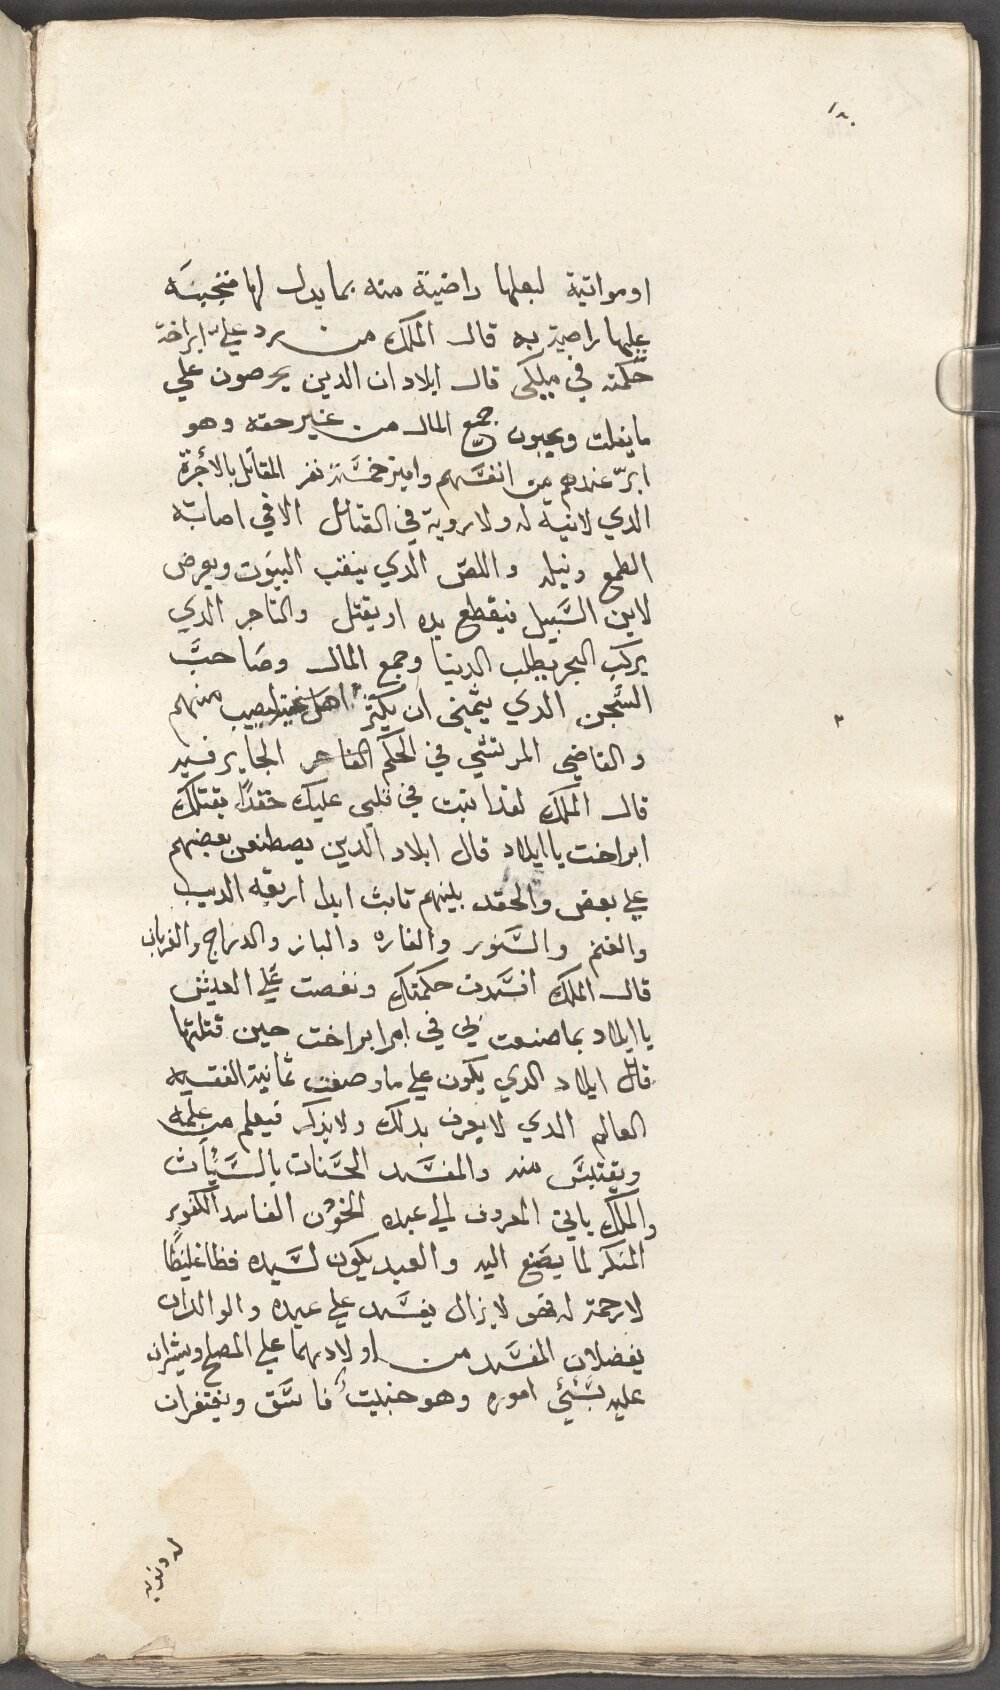 ١٨٠
او مواتية لبعلها راضية منه بما يبدل لها فتجيبه
عليها راضية به قال الملك من يرد علي ابراخت
حكمته في ملكي قال ايلاد ان الدين يحرصون علي
ما يفلت ويحبون جمع المال من غير حقه وهو
ابرّ عندهم من انفسهم وامير خمسة نفر المقاتل بالأجرة
الدي لا نية له ولا روية في القتال الا في اصابته
الطمع ونيله واللص الدي ينقب البيوت ويعرض
لابن السبيل فيقطع يده او يقتل والتاجر الدي
يركب البحر يطلب الدنيا وجمع المال وصاحب
السجن الدي يتمني ان يكثر اهل ليصيب منهم
والقاضي المرتشي في الحكم الفاجر الجاير فيه
قال الملك لقد اتبت في قلبي عليك حقدًا بقتلك
ابراخت يا ايلاد قال ايلاد الدين يصطنعن بعضهم
علي بعض والحقد بينهم تابت ابدا اربعه الديب
والغنم والسنور والفاره والباز والدراج والغربان
قال الملك افسدت حكمتك ونغصت علي العيش
يا ايلاد بما صنعت بي في امر ابراخت حين قتلتها
قال ايلاد الدي يكون علي ما وصفت ثمانية الفقيه
العالم الدي لا يعرف بدلك ولا يدكر فيعلم من علمه
ويقتبس منه والمفسد الحسنات بالسيأت
والملك ياتي المعروف الي عبده الخؤن الفاسد الكفور
المنكر لما يصنع اليه والعبد يكون لسيده فظا غليظًا
لا رحمة له فهو لا يزال يفسد علي عبده والوالدان
يفضلان المفسد من اولادهما علي المصلح ويثران
عليه بسيئ اموره وهو خبيت فاسق ويغتفران
له دنوبه